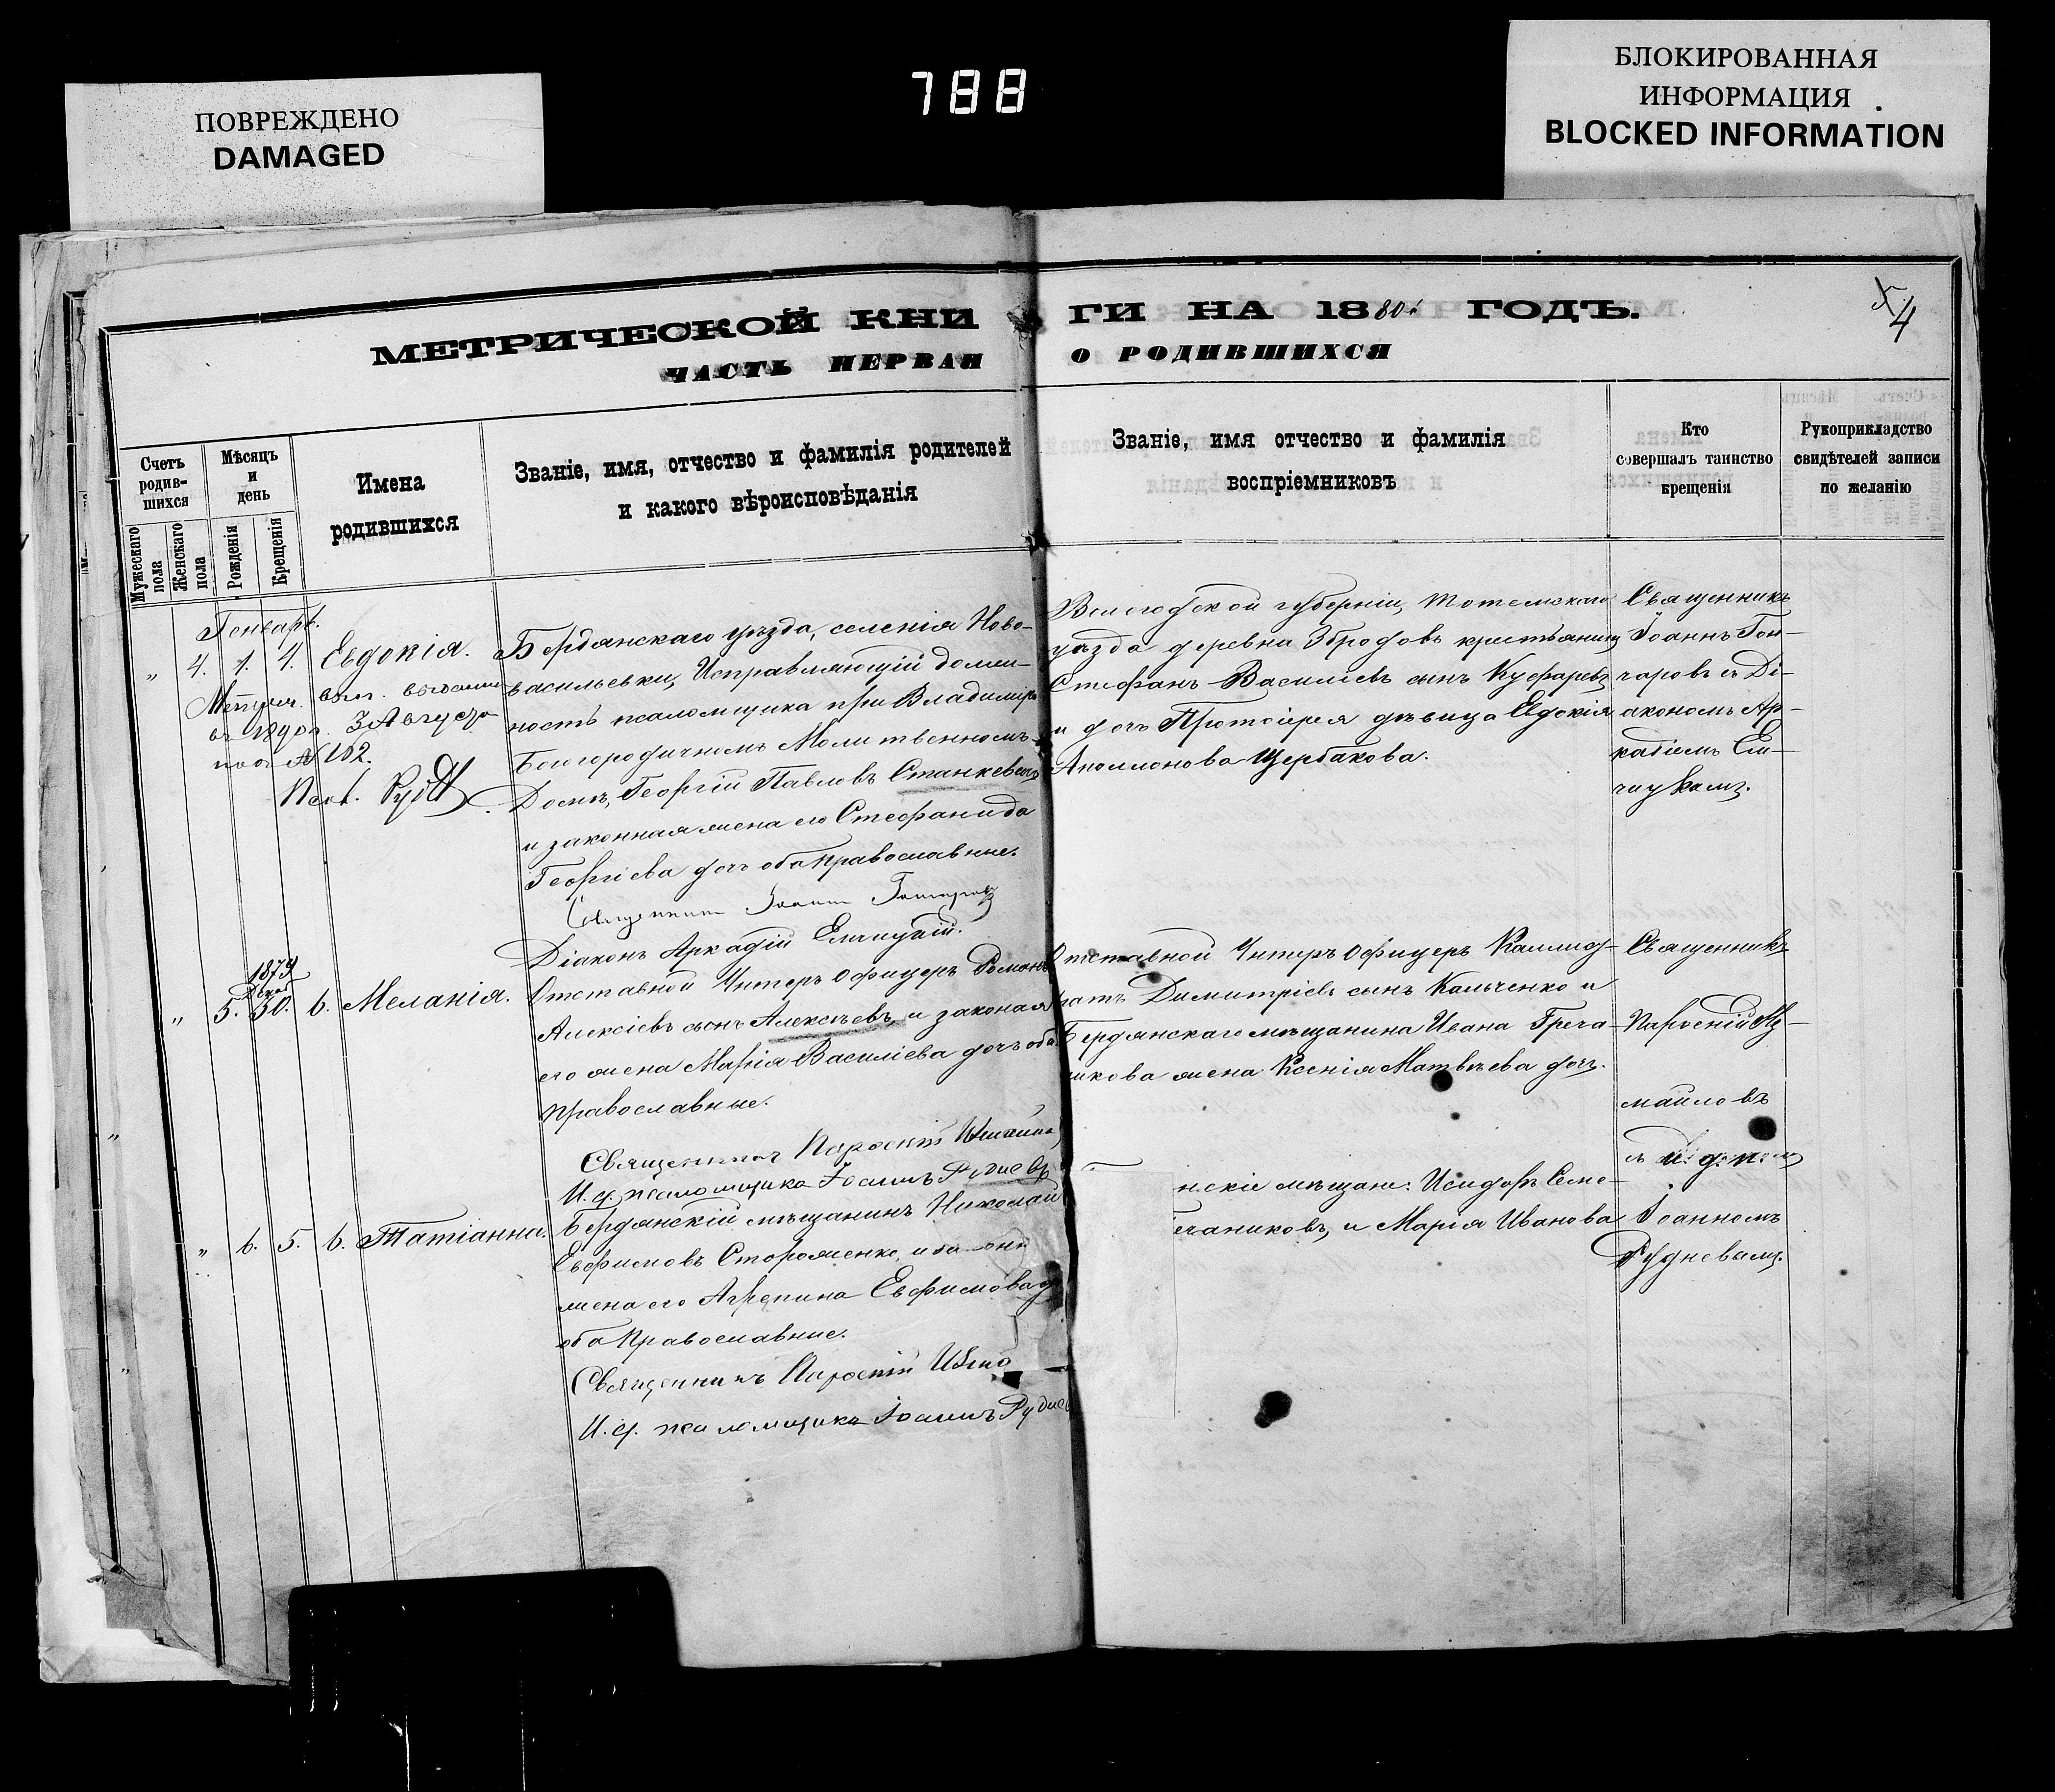 ПОВРЕЖДЕНО
DAMAGED
788
БЛОКИРОВАННАЯ
ИНФОРМАЦИЯ
BLOCKED INFORMATION
МЕТРИЧЕСКОЙ КНИ
ГИ НА 1880 ГОДЪ.
4
ЧАСТЬ ПЕРВАЯ
О РОДИВШИХСЯ
Счетъ
родив-
шихся
Мужескаго
пола
Женскаго
пола
Мѣсяцъ
и
день
Рожденія
Крещенія
Имена
родившихся
Званіе, имя, отчество и фамилія родителей
и какого вѣроисповѣданія
Званіе, имя отчество и фамилія
воспріемниковъ
Кто
совершалъ таинство
крещенія
Рукоприкладство
свидѣтелей записи
по желанію
Генварь.
„ 4. 1. 4. Евдокія.
3 Августа
№ 102.
Бердянскаго уѣзда, селенія Ново-
васильевки, Исправляющій долж-
ность псаломщика при Владимір
Богородичномъ Молитвенномъ
Домѣ, Георгій Павловъ Станкевичъ
и законная жена его Стефанида
Георгіева дочь оба православные.
Священникъ Іоаннъ Гончаровъ
Діаконъ Аркадій
Вологодской губерніи, Тотемскаго
уѣзда деревни крестьянинъ
Стефанъ Василіевъ сынъ
и дочь Протоіерея дѣвица Евдокія
Аполлонова Щербакова.
Священникъ
Іоаннъ Гон-
чаровъ съ Ді-
акономъ Ар-
кадіемъ
„ 5. 1879 Декаб 30. 6. Меланія.
Отставной Унтеръ Офицеръ Романъ
Алексіевъ сынъ Алексѣевъ, и законая
его жена Марія Василіева дочь оба
православные.
Священникъ Парѳеній
И. д. псаломщика Іоаннъ Рудневъ
Отставной Унтеръ Офицеръ
Димитріевъ сынъ Кальченко и
Бердянскаго мѣщанина Ивана Греча
никова жена Ксенія Матвѣева дочь.
Священникъ
Парѳеній Из-
маиловъ
съ и. д. п.
Іоанномъ
Рудневымъ.
„ 6. 5. 6. Татіанна.
Бердянскій мѣщанинъ Николай
Евфимовъ Стороженко и
жена его Агрепина Евфимова
оба Православные.
Священникъ Парѳеній Изма
И. д. псаломщика Іоаннъ Рудне
нскіе мѣщане: Исидоръ Семе-
ечаниковъ, и Марія Иванова